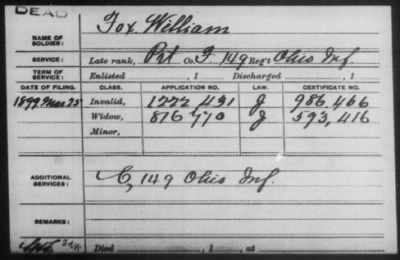 DEAD
NAME OF SOLDIER: Fox, William
SERVICE: Late rank, Pvt Co. F, 149 Reg't Ohio Inf.
TERM OF SERVICE: Enlisted , 1 Discharged , 1
DATE OF FILING. CLASS. APPLICATION NO. LAW. CERTIFICATE NO.
1899 Mar 25 Invalid, 1222,431 J 986,466
Widow, 876,770 J 593,416
Minor,
ADDITIONAL SERVICES: C, 149 Ohio Inf.
REMARKS:
Died , 1 , at